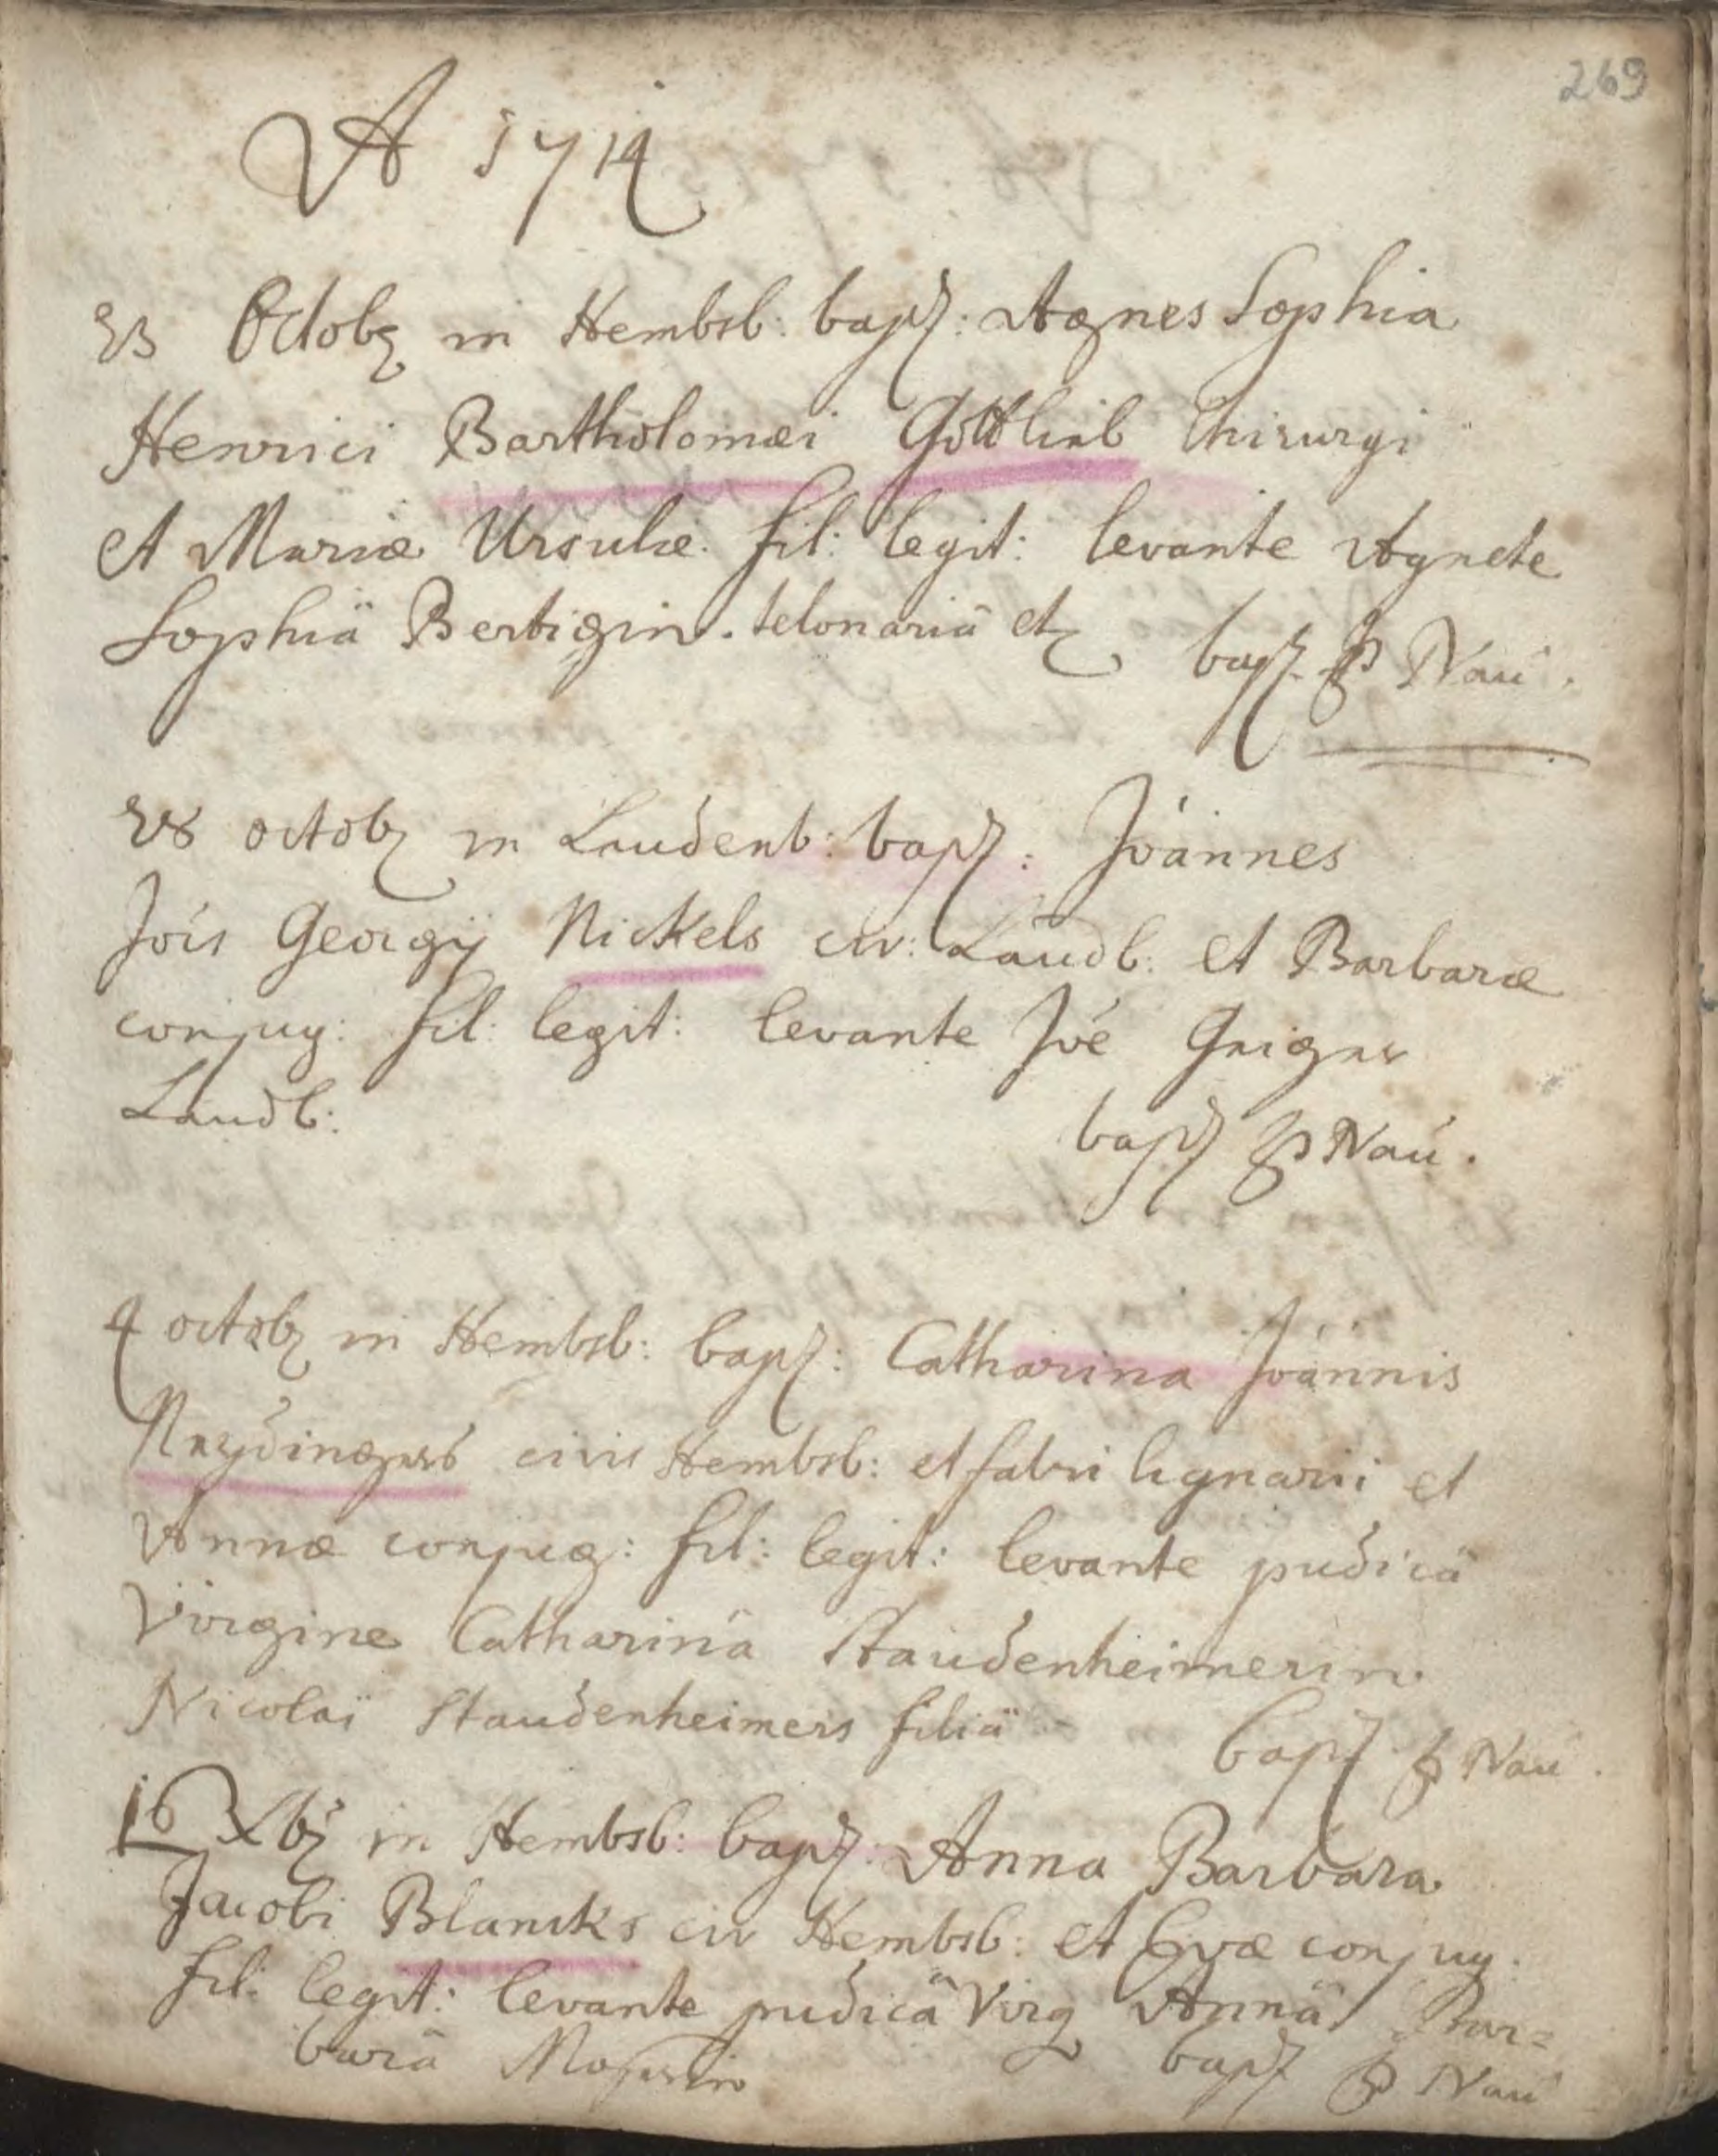 269
A 1714
23 Octobr in Hembsb: bapt: Agnes Sophia
Henrici Bartholomæi Gottlieb Chirurgi
et Mariæ Ursulæ. fil: legit: levante Agnete
Sophiâ Bertigin. telonariâ etc bapt. P Nau.
28 octobr in Laudenb: bapt: Joannes
Jois Georgÿ Nickels civ: Laudb: et Barbaræ
conjug: fil: legit: levante Joe Geiger
Laudb: bapt P Nau.
4 octobr in Hembsb: bapt: Catharina Joannis
Neydingers civis Hembsb: et fabri lignarii et
Annæ conjug: fil: legit: levante pudicâ
Virgine Catharinâ Staudenheimerin
Nicolai Staudenheimers filiâ bapt. P Nau.
16 Xbr in Hembsb: bapt: Anna Barbara
Jacobi Blancks civ Hembsb: et Evæ conjug:
fil: legit: levante pudicâ Virg Annâ Bar=
barâ bapt P Nau